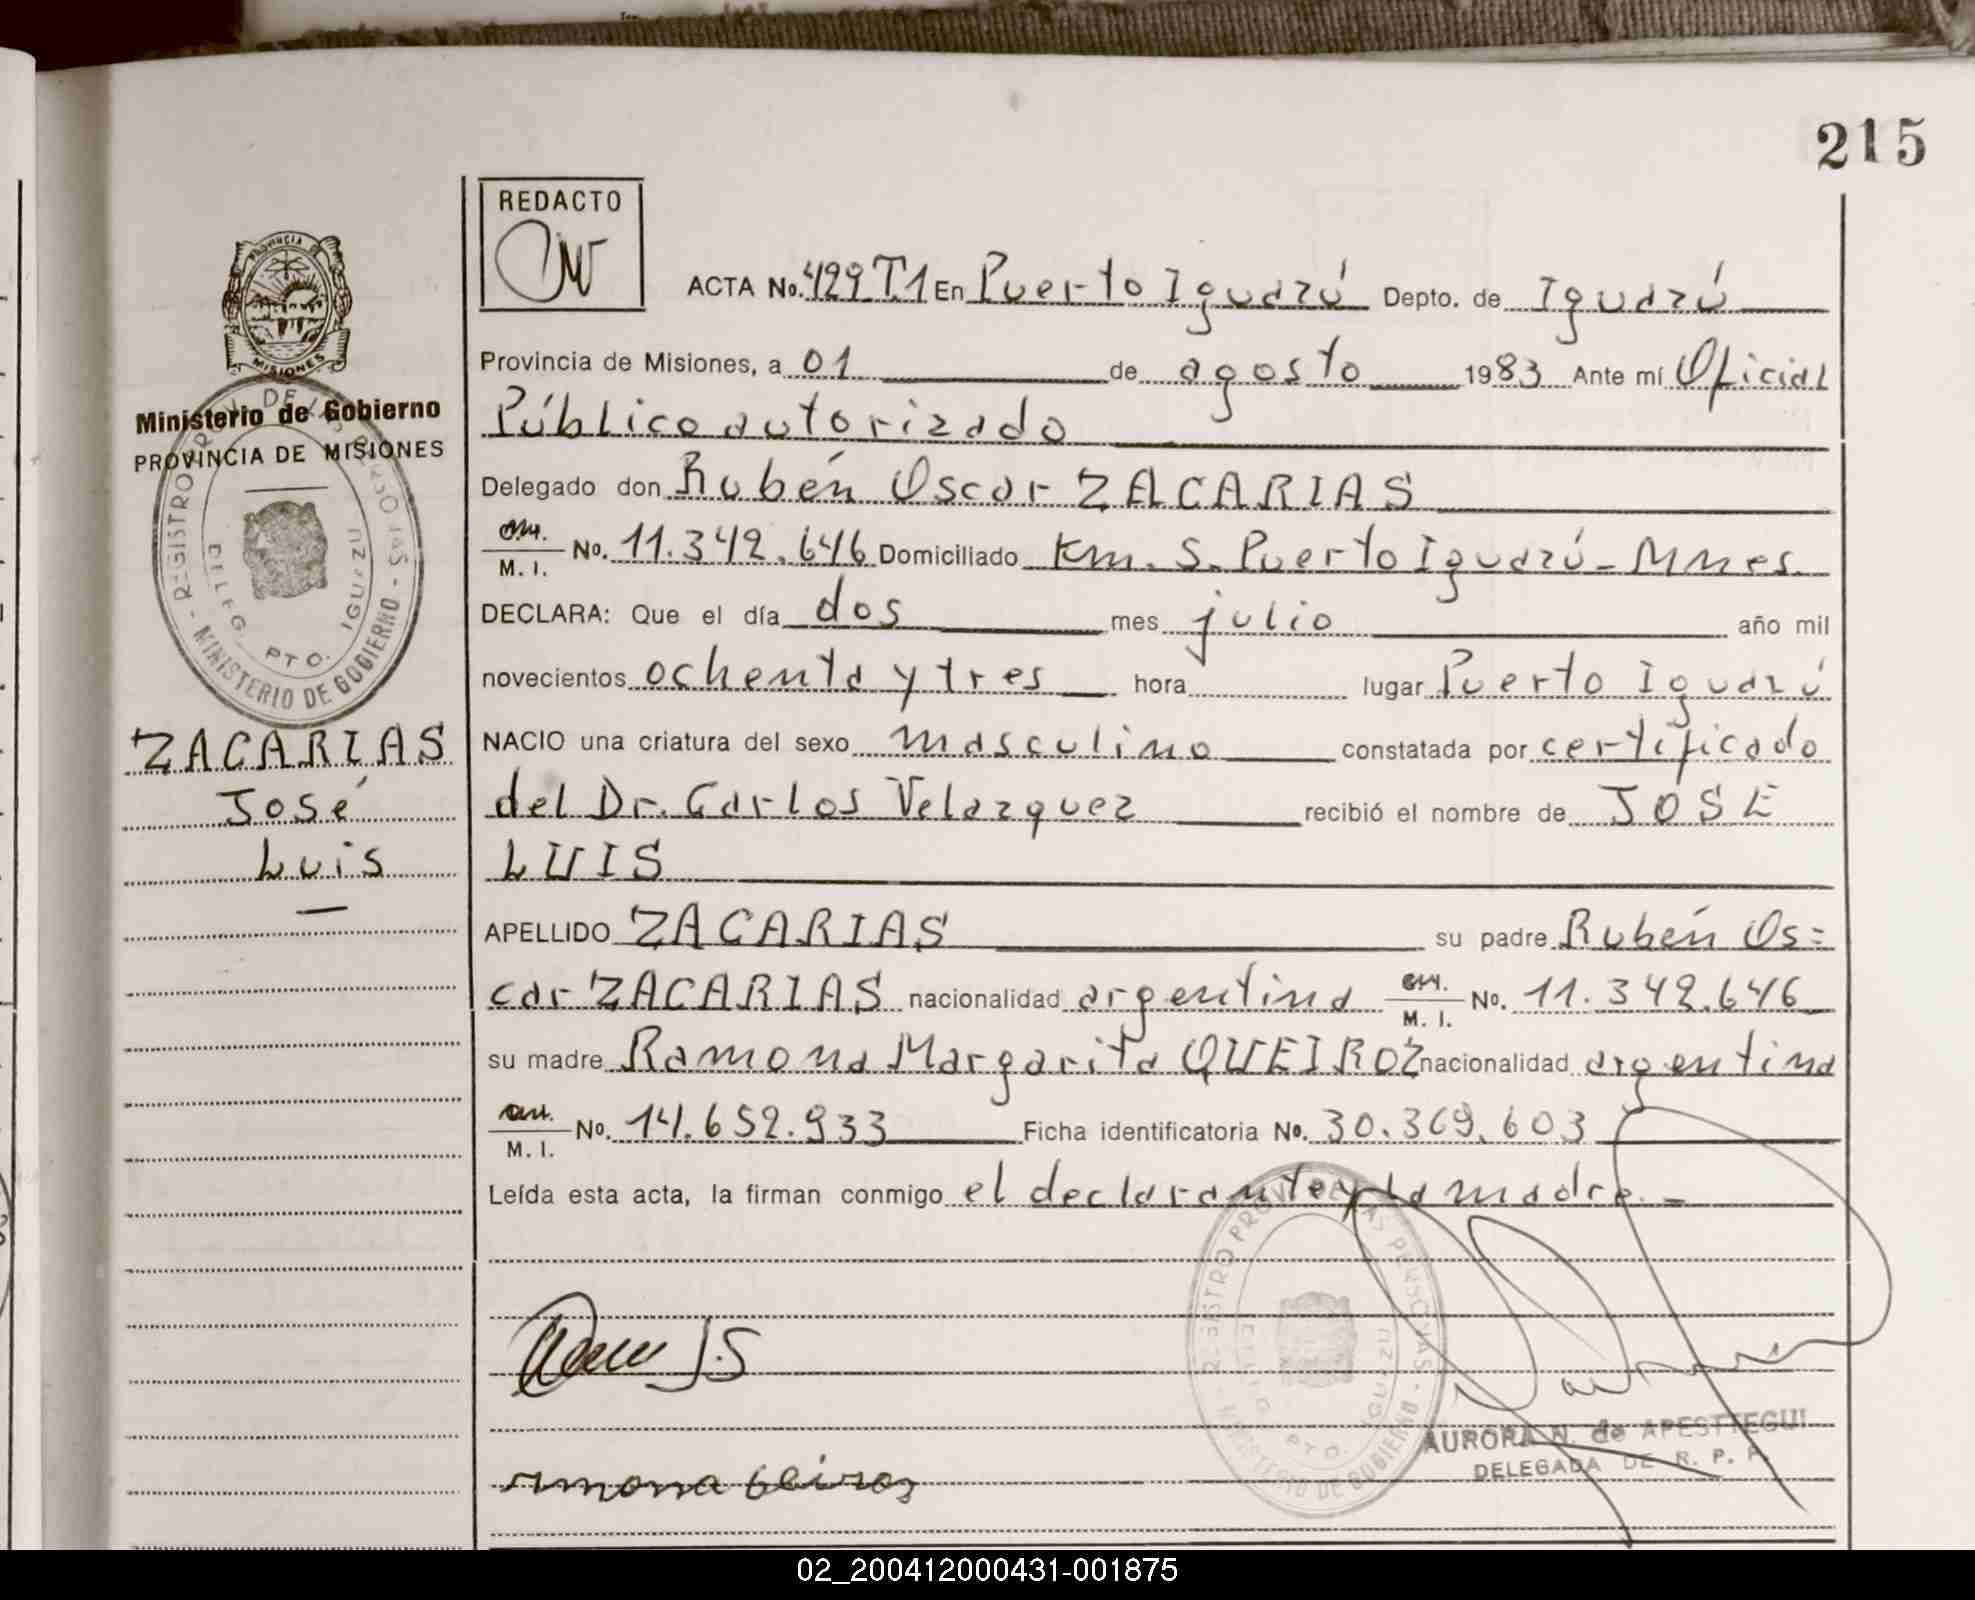 215
REDACTO
ACTA No. 429 T.1 En Puerto Iguazú Depto. de Iguazú
PROVINCIA DE
MISIONES
Provincia de Misiones, a 01 de agosto 1983 Ante mí Oficial
Ministerio de Gobierno
Público autorizado
PROVINCIA DE MISIONES
Delegado don Rubén Oscar ZACARIAS
M. I. No. 11.342.646 Domiciliado Km. 5. Puerto Iguazú - Mnes.
REGISTRO DE LAS PERSONAS - MINISTERIO DE GOBIERNO -
DELEG. PTO. IGUAZU
DECLARA: Que el día dos mes julio año mil
novecientos ochenta y tres hora lugar Puerto Iguazú
ZACARIAS
NACIO una criatura del sexo masculino constatada por certificado
José
del Dr. Carlos Velazquez recibió el nombre de JOSÉ
Luis
LUIS
APELLIDO ZACARIAS su padre Rubén Os=
car ZACARIAS nacionalidad argentina M. I. No. 11.342.646
su madre Ramona Margarita QUEIROZ nacionalidad argentina
M. I. No. 14.652.933 Ficha identificatoria No. 30.369.603
Leída esta acta, la firman conmigo el declarante y la madre. -
REGISTRO PROV. DE LAS PERSONAS - MINISTERIO DE GOBIERNO -
DELEG. PTO. IGUAZU
AURORA N. de APESTTEGUI
DELEGADA DE R. P. P.
02_200412000431-001875